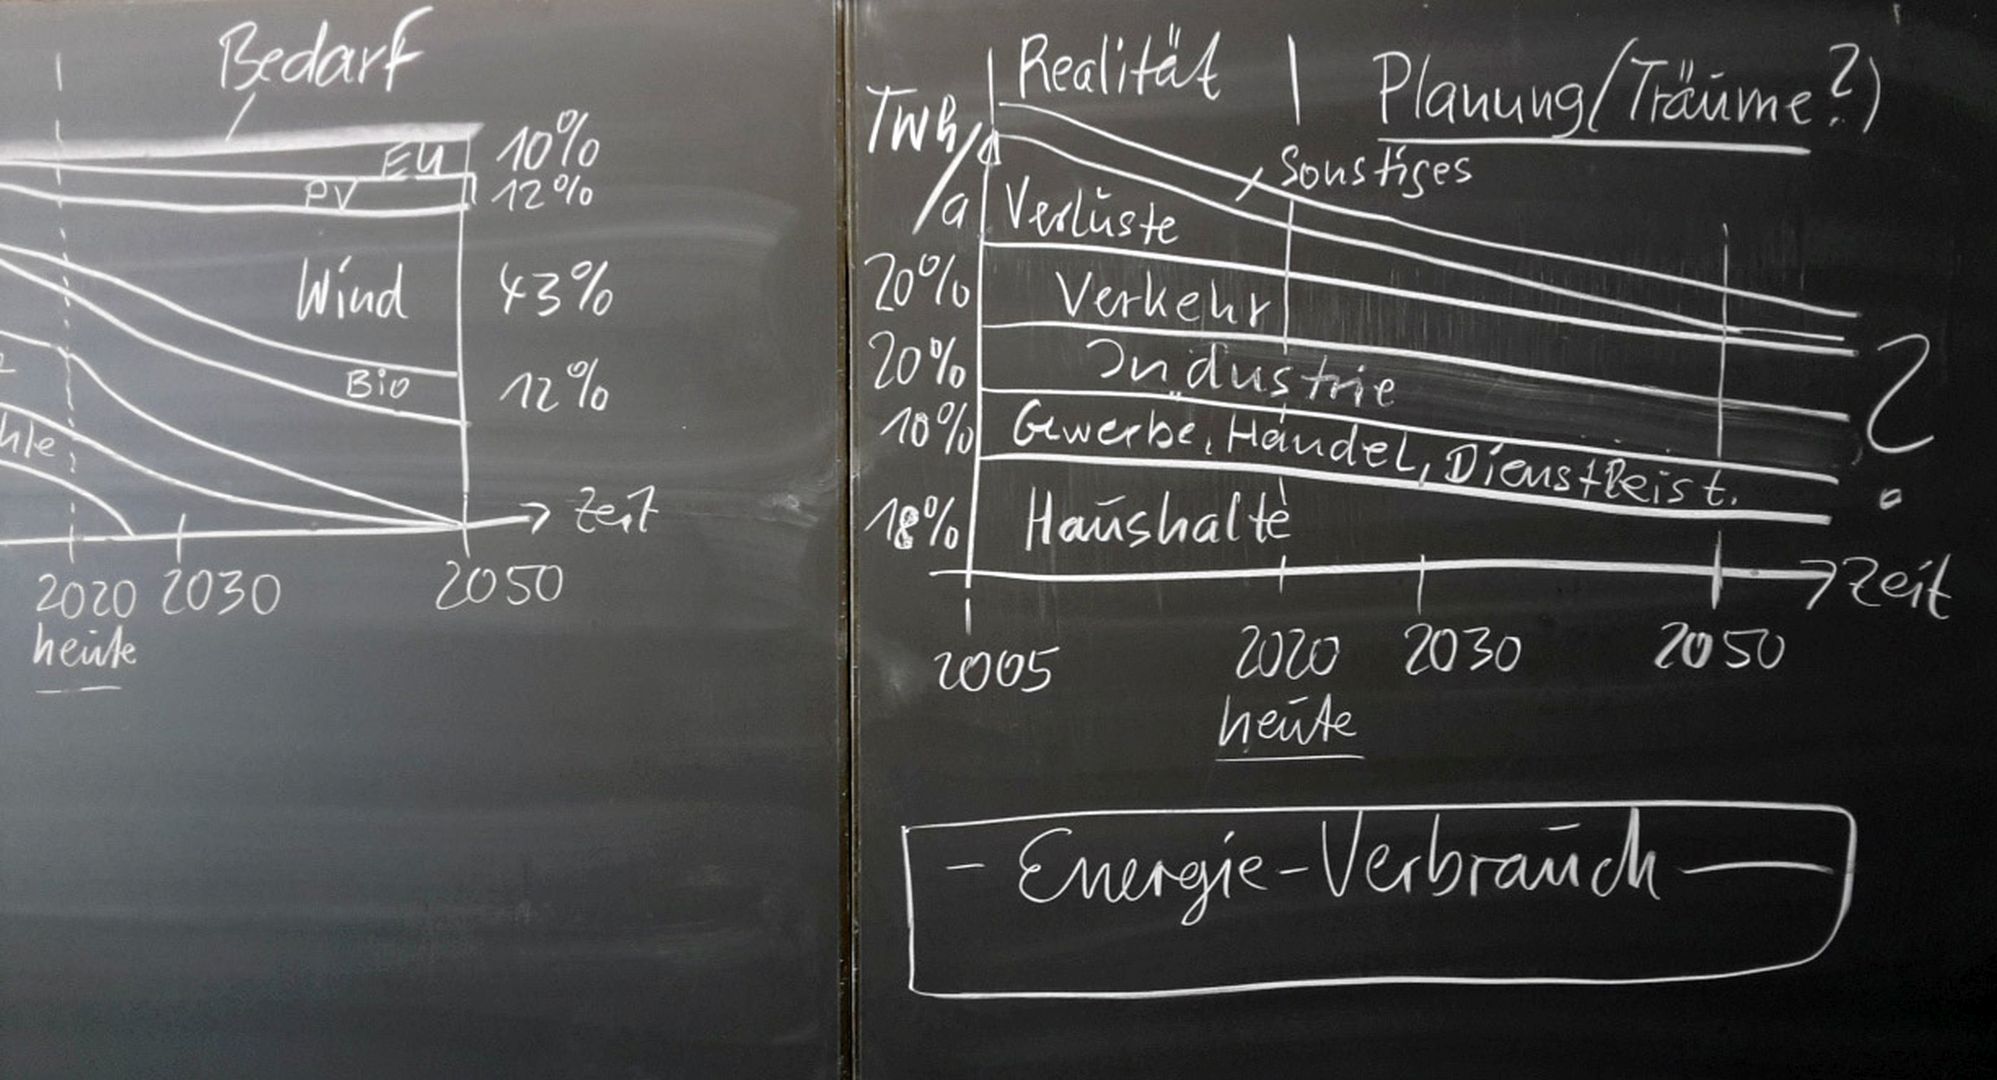 Bedarf
EU 10%
PV 12%
Wind 43%
Bio 12%
hle
→ Zeit
2020 2030 2050
heute
Realität | Planung/Träume?)
TWh/a
Sonstiges
Verluste
20% Verkehr
20% Industrie
10% Gewerbe, Handel, Dienstleist.
18% Haushalte
?
→ Zeit
2005 2020 2030 2050
heute
- Energie-Verbrauch -